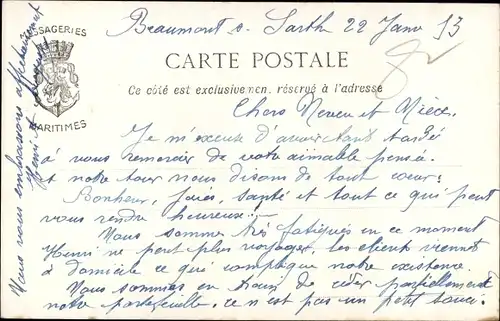 Beaumont s. Sarthe 22 Janv 13
MESSAGERIES
MARITIMES
CARTE POSTALE
Ce côté est exclusivemen. réservé à l'adresse
Chers Neveu et Nièce,
Je m'excuse d'avoir tant tardé
à vous remercier de votre aimable pensée.
et notre tour nous disons de tout cœur:
Bonheur, Joies, santé et tout ce qui peut
vous rendre heureuse!
Nous somme très fatigués en ce moment
Henri ne peut plus voyager, les clients viennent
à domicile ce qui complique notre existence.
Nous sommes en train de céder partiellement
notre portefeuille, ce n'est pas un petit souci.
Nous vous embrassons affectueusement
Henri et